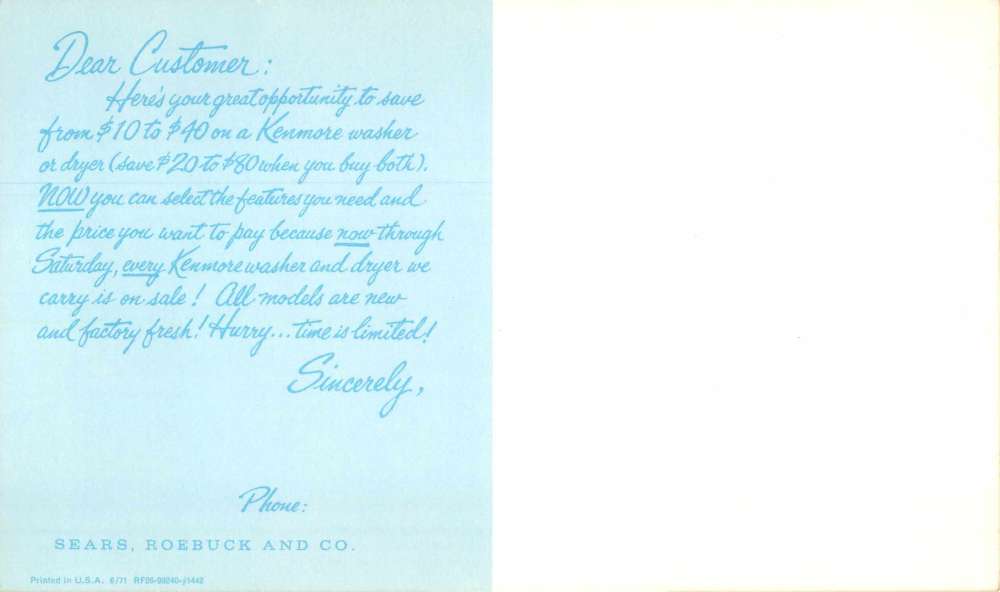 Dear Customer:
Here's your great opportunity to save
from $10 to $40 on a Kenmore washer
or dryer (save $20 to $80 when you buy both).
NOW you can select the features you need and
the price you want to pay because now through
Saturday, every Kenmore washer and dryer we
carry is on sale! All models are new
and factory fresh! Hurry... time is limited!
Sincerely,
Phone:
SEARS, ROEBUCK AND CO.
Printed in U.S.A. 6/71